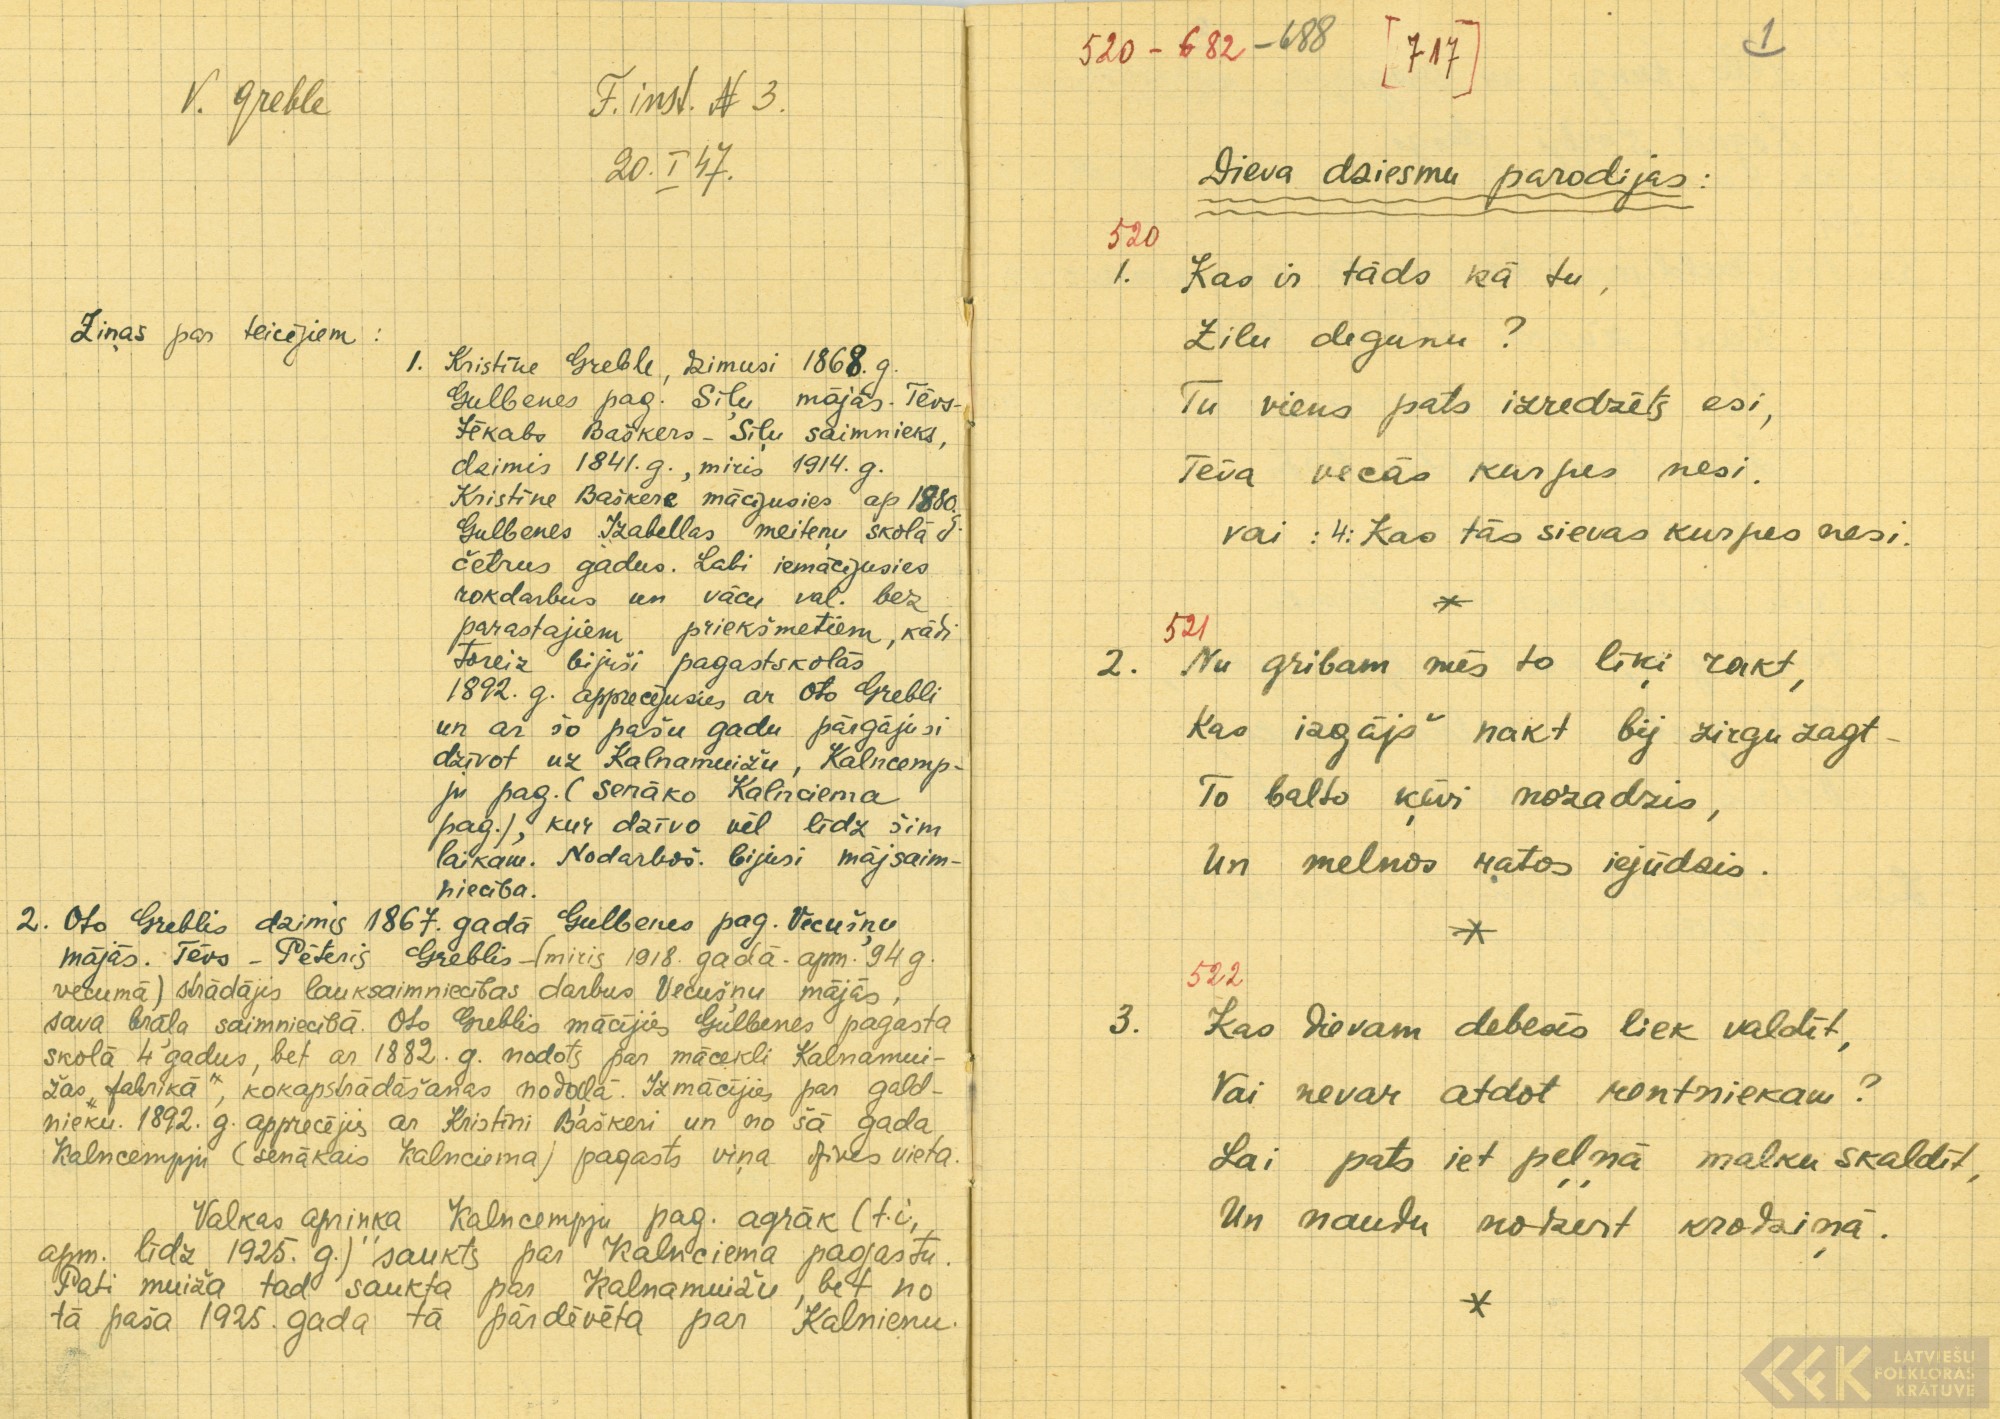 V. Greble
F. inst. N 3.
20. I 47.
Ziņas par teicējiem :
1. Kristīne Greble, dzimusi 1868. g.
Gulbenes pag. Siļu mājās. Tēvs-
Jēkabs Baškers - Siļu saimnieks,
dzimis 1841. g., miris 1914. g.
Kristīne Baškere mācijusies ap 1880. g.
Gulbenes Izabellas meiteņu skolā
četrus gadus. Labi iemācijusies
rokdarbus un vācu val. bez
parastajiem priekšmetiem, kādi
toreiz bijuši pagastskolās
1892. g. apprecējusies ar Oto Grebli
un ar šo pašu gadu pārgājusi
dzīvot uz Kalnamuižu, Kalncemp-
ju pag. (senāko Kalnciema
pag.), kur dzīvo vēl līdz šim
laikam. Nodarboš. bijusi mājsaim-
niecība.
2. Oto Greblis dzimis 1867. gadā Gulbenes pag. Vecušņu
mājās. Tēvs - Pēteris Greblis - (miris 1918. gadā - apm. 94 g.
vecumā) strādājis lauksaimniecības darbus Vecušņu mājās,
sava brāļa saimniecībā. Oto Greblis mācījies Gulbenes pagasta
skolā 4 gadus, bet ar 1882. g. nodots par mācekli Kalnamui-
žas „fabrikā", kokapstrādāšanas nodaļā. Izmācījies par gald-
nieku. 1892. g. apprecējis ar Kristīni Baškeri un no šā gada
Kalncempju (senākais Kalnciema) pagasts viņa dzīves vieta.
Valkas apriņķa Kalncempju pag. agrāk (t.i,
apm. līdz 1925. g.) saukts par Kalnciema pagastu.
Pati muiža tad saukta par Kalnamuižu, bet no
tā paša 1925. gada tā pārdēvēta par Kalnienu.
520 - 682 - 688 [717]
1
Dieva dziesmu parodijas :
520
1. Kas ir tāds kā tu,
Zilu degunu ?
Tu viens pats izredzēts esi,
Tēva vecās kurpes nesi.
vai : 4: Kas tās sievas kurpes nesi.
*
521
2. Nu gribam mēs to līķi rakt,
Kas izgājš nakt bij zirgu zagt -
To balto ķēvi nozadzis,
Un melnos ratos iejūdzis.
*
522
3. Kas Dievam debesīs liek valdīt,
Vai nevar atdot rentniekam ?
Lai pats iet peļņā malku skaldīt,
Un naudu nodzert krodziņā.
*
LATVIEŠU
FOLKLORAS
KRĀTUVE